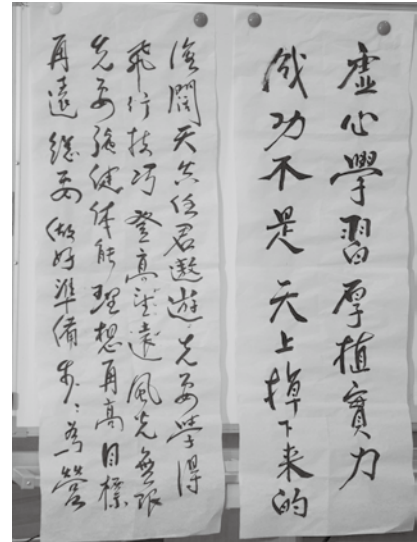 虛心學習厚植實力
成功不是天上掉下来的
海闊天空任君遨遊先要學得
飛行技巧登高望遠風光無限
先要強健体能理想再高目標
再遠總要做好準備步〻為營